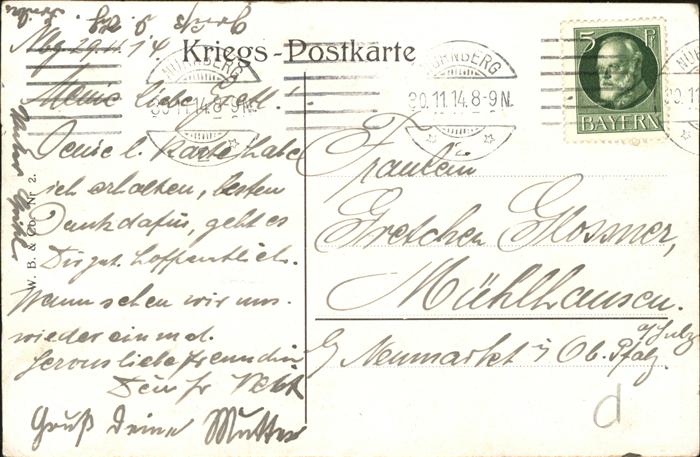 Kriegs-Postkarte
Nbg 29.11.14
Meine liebe
Deine l. Karte habe
ich erhalten, besten
Dank dafür, geht es
Dir gut. hoffentlich.
Wann sehen wir uns
wieder einmal.
Gruß Deine Mutter
W. B. & Co. Nr. 2.
NÜRNBERG
30.11.14.8-9N.
2
NÜRNBERG
30.11.14.8-9N.
2
5 Pf
BAYERN
NÜR
30.1
Fräulein
Gretchen Glossner,
Mühlhausen.
a/Sulz
Neumarkt i Ob. Pfalz.
d